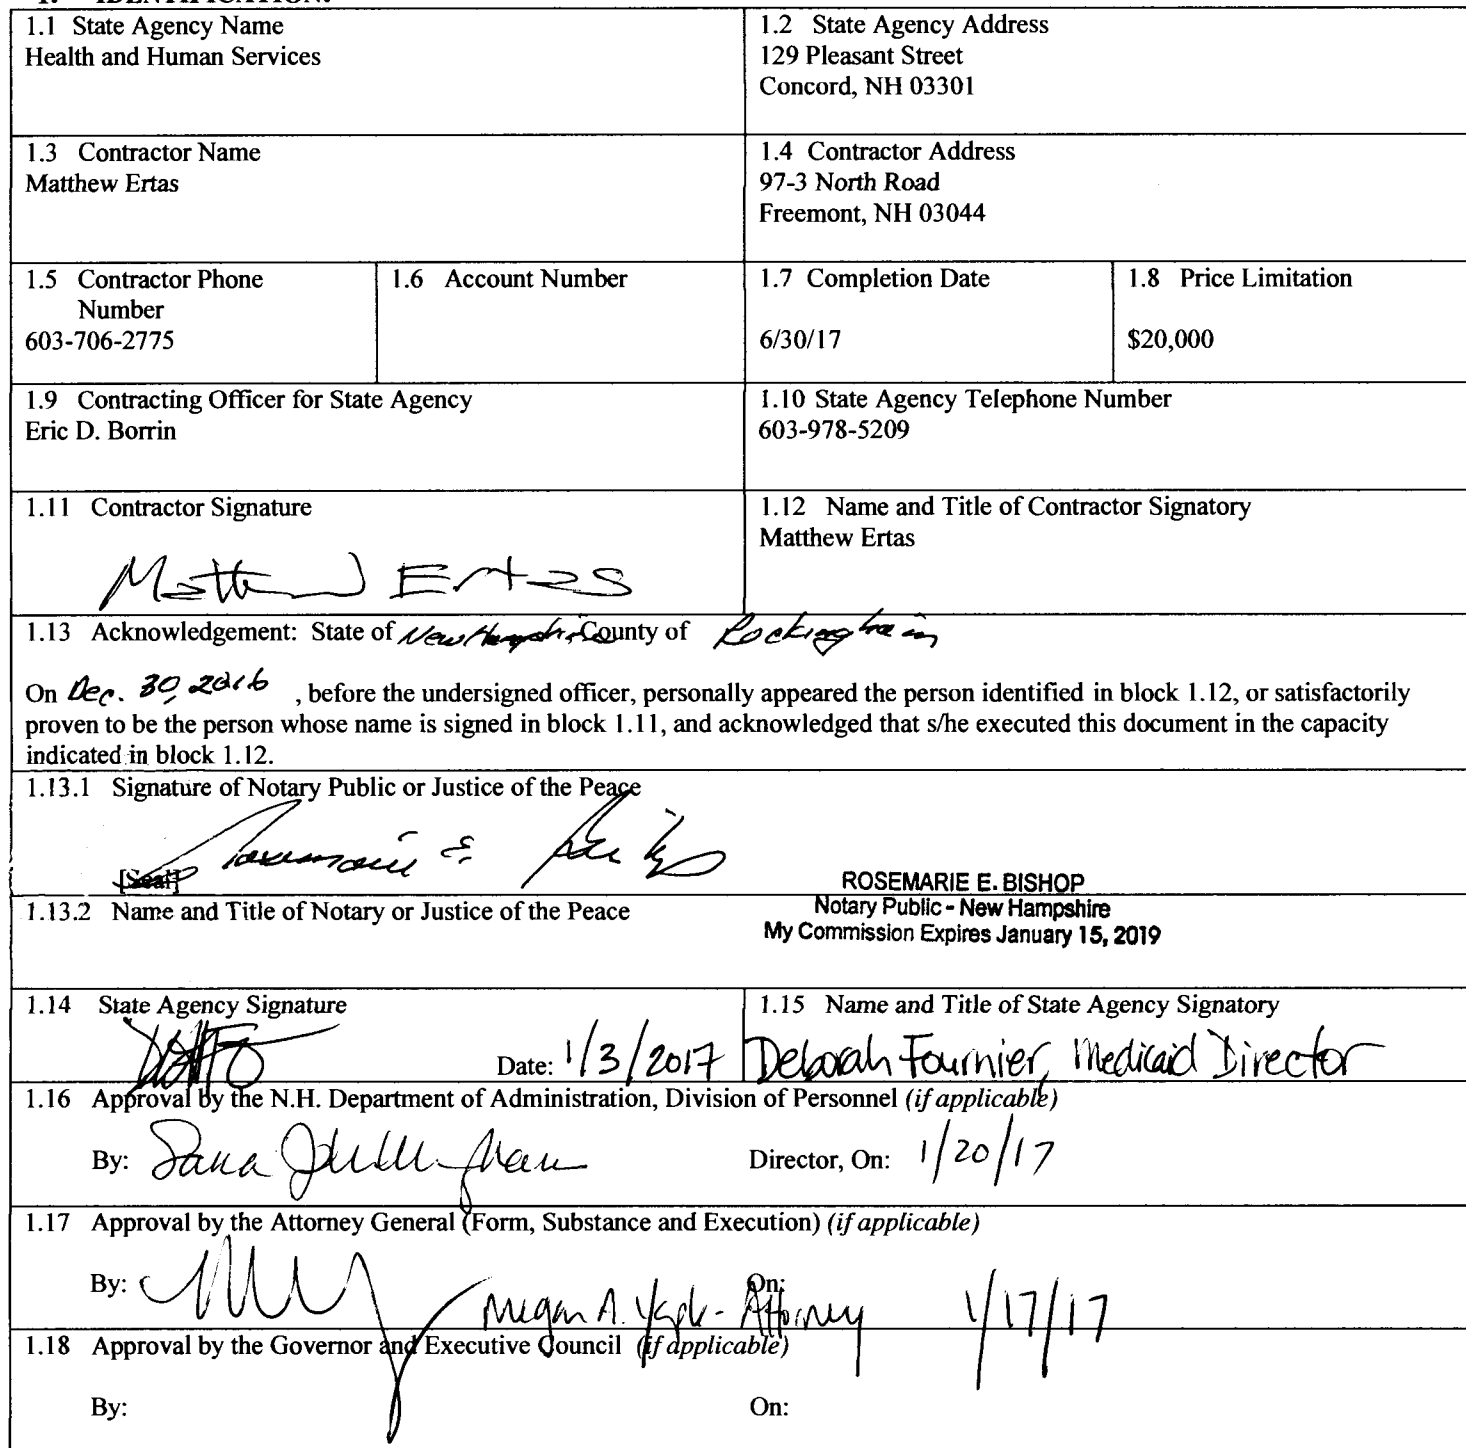 1. IDENTIFICATION.
1.1 State Agency Name
Health and Human Services
1.2 State Agency Address
129 Pleasant Street
Concord, NH 03301
1.3 Contractor Name
Matthew Ertas
1.4 Contractor Address
97-3 North Road
Freemont, NH 03044
1.5 Contractor Phone
Number
603-706-2775
1.6 Account Number
1.7 Completion Date
6/30/17
1.8 Price Limitation
$20,000
1.9 Contracting Officer for State Agency
Eric D. Borrin
1.10 State Agency Telephone Number
603-978-5209
1.11 Contractor Signature
Matthew Ertas
1.12 Name and Title of Contractor Signatory
Matthew Ertas
1.13 Acknowledgement: State of New Hampshire County of Rockingham
On Dec. 30, 2016 , before the undersigned officer, personally appeared the person identified in block 1.12, or satisfactorily
proven to be the person whose name is signed in block 1.11, and acknowledged that s/he executed this document in the capacity
indicated in block 1.12.
1.13.1 Signature of Notary Public or Justice of the Peace
[Seal]
ROSEMARIE E. BISHOP
Notary Public - New Hampshire
My Commission Expires January 15, 2019
1.13.2 Name and Title of Notary or Justice of the Peace
1.14 State Agency Signature
Date: 1/3/2017
1.15 Name and Title of State Agency Signatory
Deborah Fournier, Medicaid Director
1.16 Approval by the N.H. Department of Administration, Division of Personnel (if applicable)
By:
Director, On: 1/20/17
1.17 Approval by the Attorney General (Form, Substance and Execution) (if applicable)
By: Megan A. - Attorney
On: 1/17/17
1.18 Approval by the Governor and Executive Council (if applicable)
By:
On: